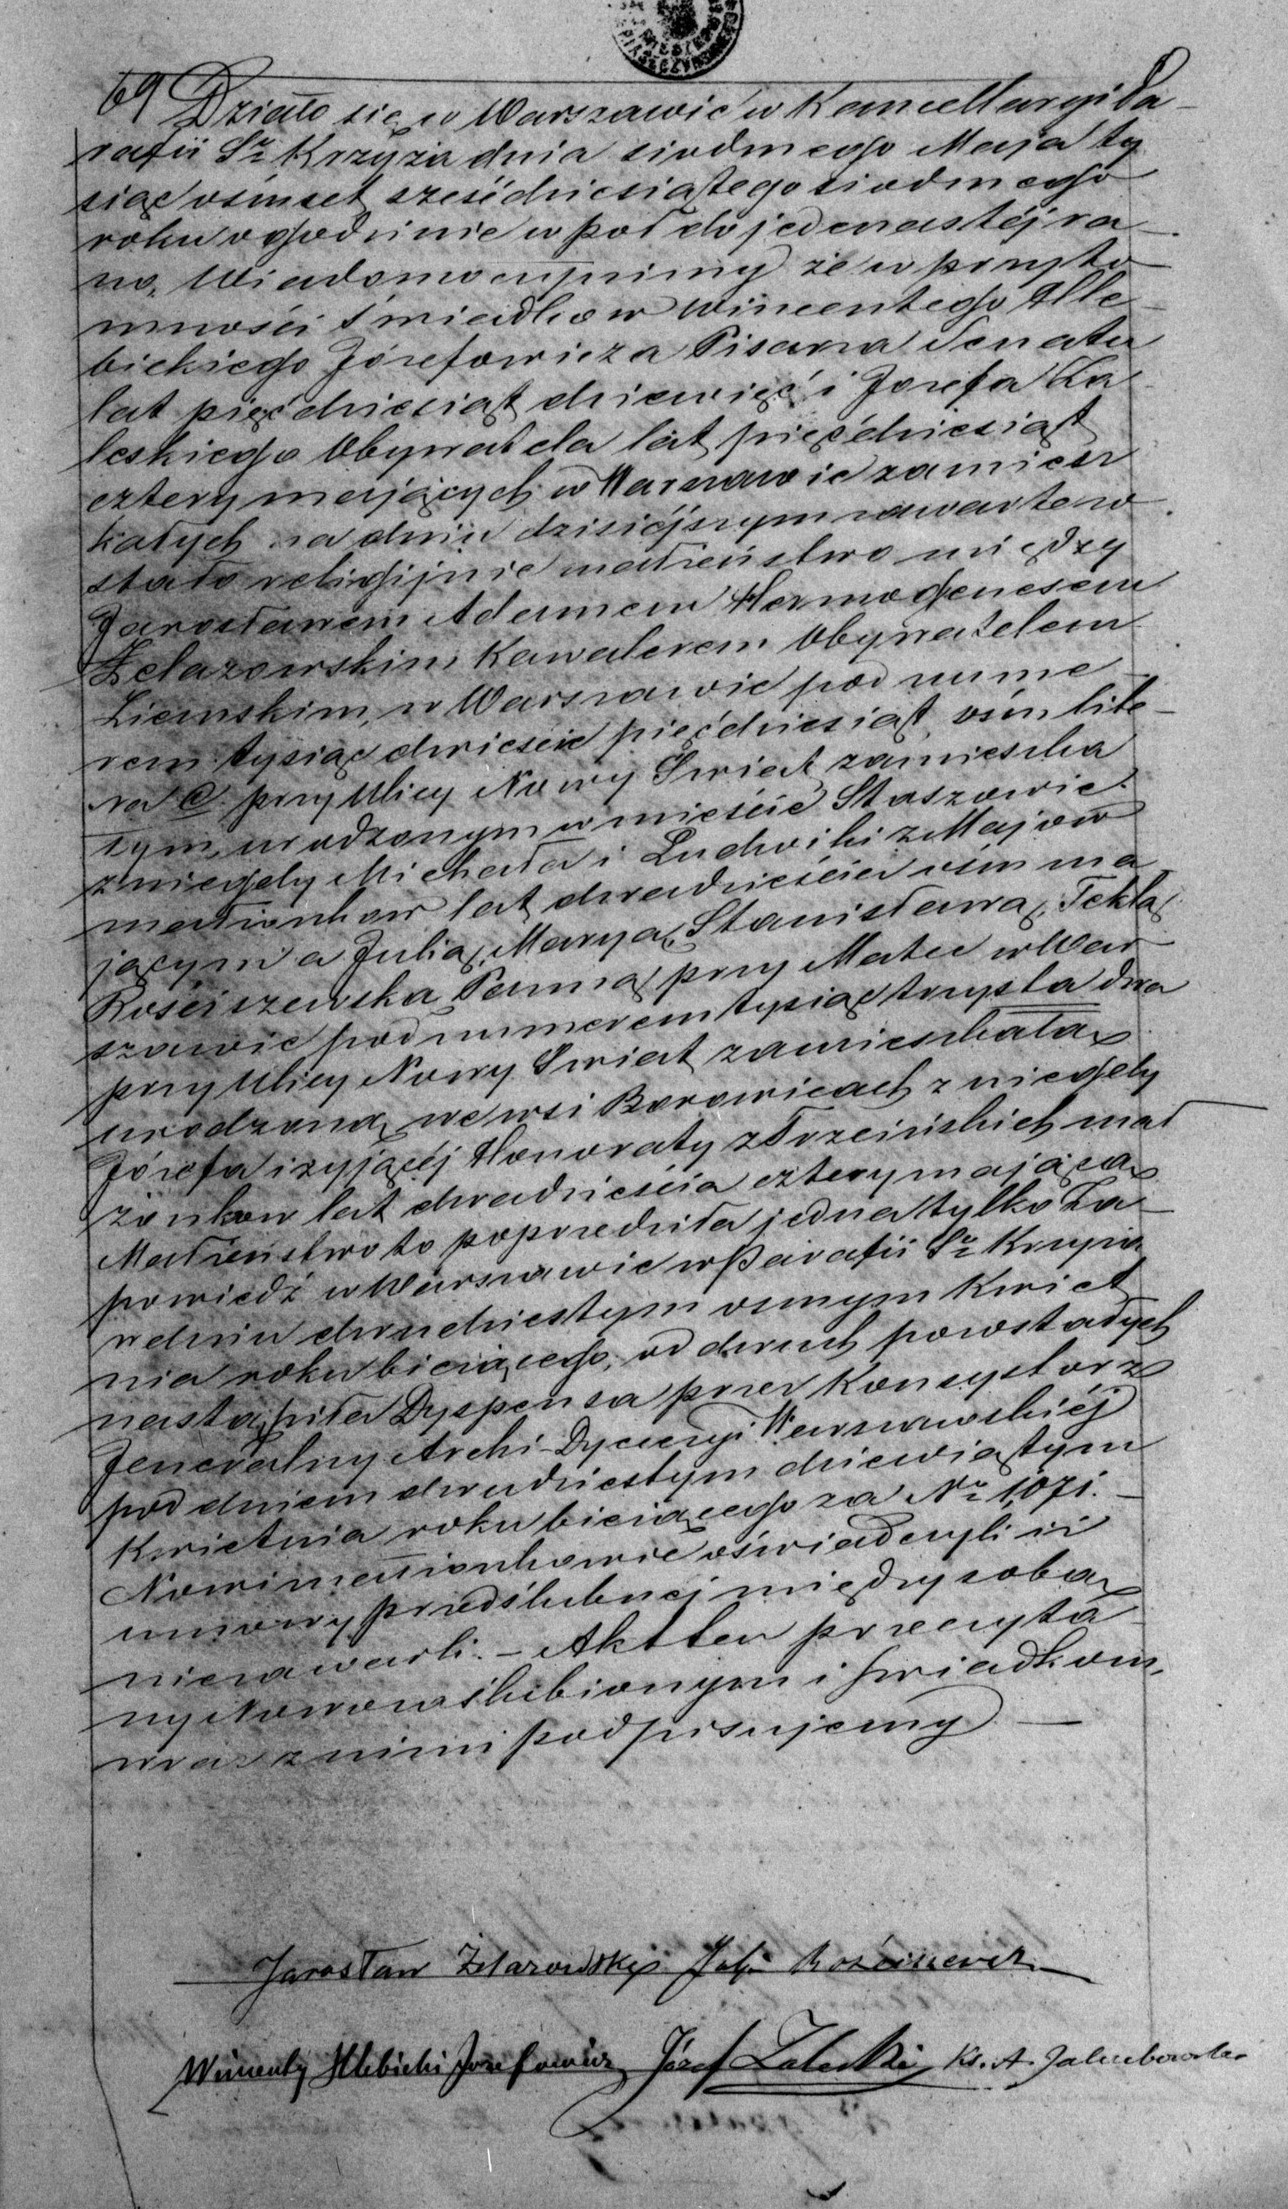 69 Działo się w Warszawie w Kancellaryi Pa-
rafii Sgo Krzyża dnia siodmego Maja ty
siąc ośmset sześćdziesiątego siodmego
roku o godzinie w poł do jedenastéj ra-
no, Wiadomo czynimy że w przyto-
mności świadkow Wincentego Hle-
bickiego Józefowicza Pisarza Senatu
lat pięćdziesiąt dziewięć i Józefa Za
leskiego Obywatela lat pięćdziesiąt
cztery mających w Warszawie zamiesz
kałych na dniu dzisiéjszym zawarte zo
stało religijnie małżeństwo między
Jarosławem Adamem Hermogenesem
Żelazowskim Kawalerem Obywatelem
Ziemskim, w Warszawie pod nume-
rem tysiąc dwieście pięćdziesiąt ośm lite-
ra C. przy Ulicy Nowy Swiat zamieszka
łym, urodzonym w mieście Staszowie
z niegdy Michała i Ludwiki z Majow
małżonkow lat dwadzieścia ośm ma
jącym a Julią, Maryą, Stanisławą, Teklą,
Rościszewską Panną przy Matce w War
szawie pod numerem tysiąc trzysta dwa
przy Ulicy Nowy Swiat zamieszkałą
urodzoną we wsi Borowicach z niegdy
Józefa i żyjącéj Honoraty z Trzcińskich mał
żonkow lat dwadzieścia cztery mającą
Małżeństwo to poprzedziła jedna tylko Za-
powiedź w Warszawie w Parafii Sgo Krzyża
w dniu dwudziestym osmym Kwiet
nia roku bieżącego, od dwuch powstałych
nastąpiła Dyspensa przez Konsystorz
Jeneralny Archi-Dyecezyi Warszawskiéj
pod dniem dwudziestym dziewiątym
Kwietnia roku bieżącego za Nr 1071.-
Nowi małżonkowie oświadczyli iż
umowy przedślubnej między sobą
nie zawarli.- Akt ten przeczyta
ny Nowozaślubionym i świadkom,
wraz z nimi podpisujemy -
Jarosław Żelazowski Julia Rościszewska
Wincenty Hlebicki Józefowicz Józef Zaleski Ks. A. Jakubowski